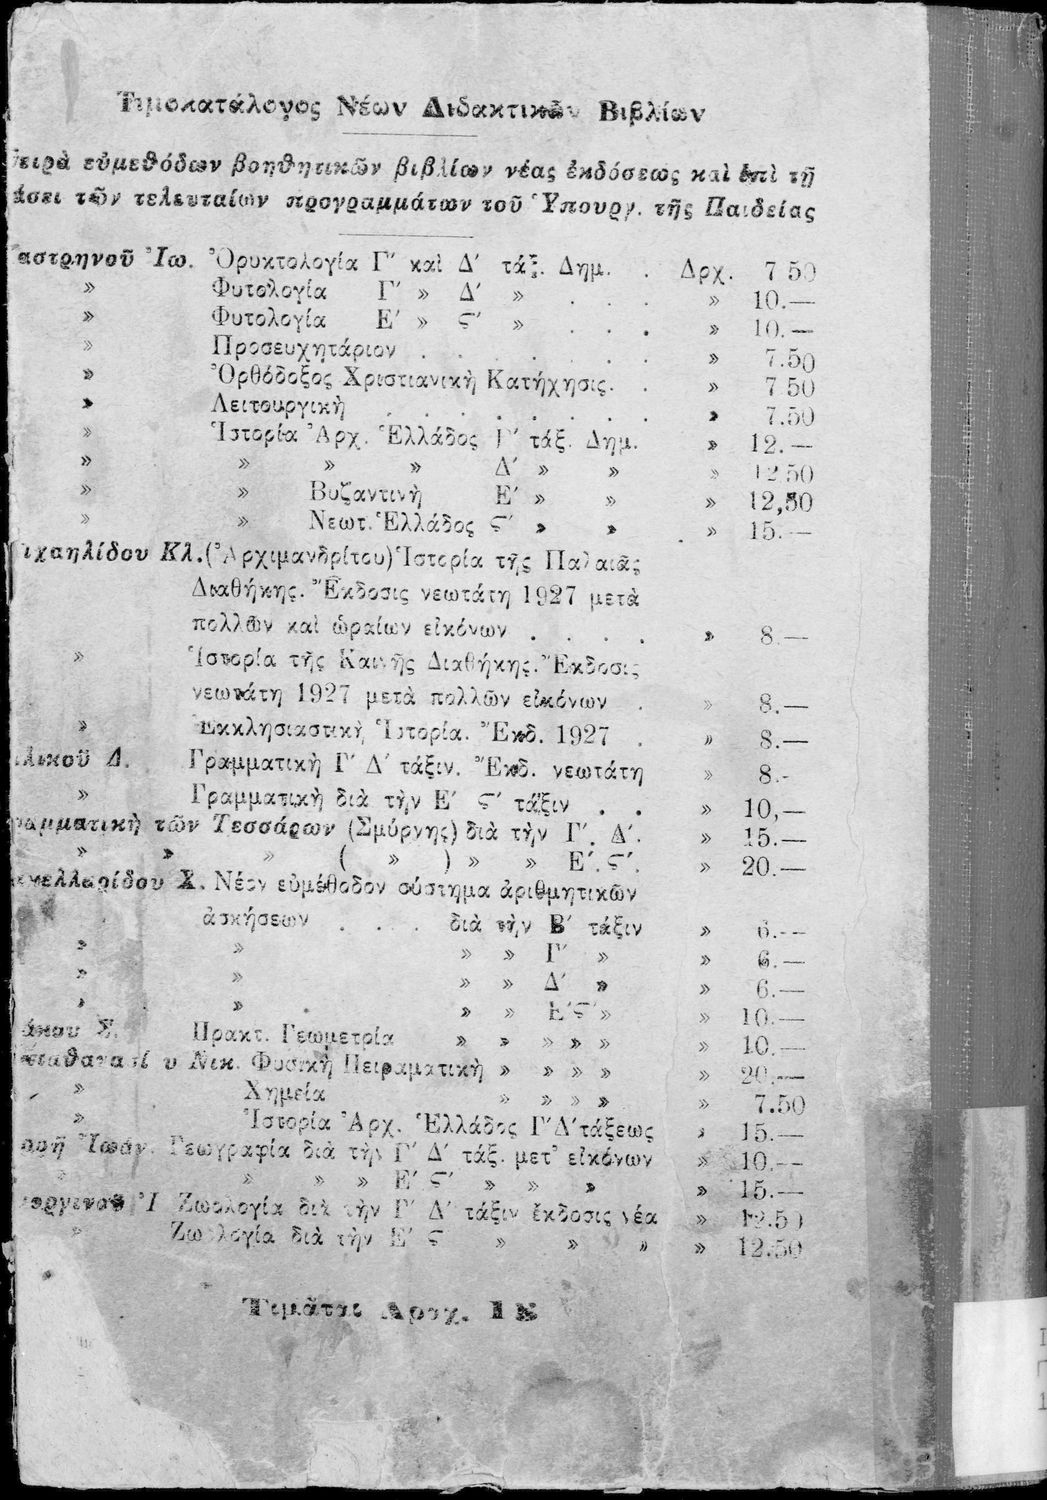 Τιμοκατάλογος Νέων Διδακτικῶν Βιβλίων
εὐμεθόδων βοηθητικῶν βιβλίων νέας ἐκδόσεως καὶ ἐπὶ τῇ
τῶν τελευταίων προγραμμάτων τοῦ Ὑπουργ. τῆς Παιδείας
Ἰω. Ὀρυκτολογία Γ′ καὶ Δ′ τάξ. Δημ. . Δρχ. 7 50
» Φυτολογία Γ′ » Δ′ » . . . » 10.—
» Φυτολογία Ε′ » Ϛ′ » . . . » 10.—
» Προσευχητάριον . . . . . . . » 7.50
» Ὀρθόδοξος Χριστιανικὴ Κατήχησις. . » 7 50
» Λειτουργικὴ . . . . . . . . » 7.50
» Ἱστορία Ἀρχ. Ἑλλάδος Γ′ τάξ. Δημ. » 12.—
» » » » Δ′ » » » 12.50
» » Βυζαντινὴ Ε′ » » » 12,50
» » Νεωτ. Ἑλλάδος Ϛ′ » » . » 15.—
Κλ. (Ἀρχιμανδρίτου) Ἱστορία τῆς Παλαιᾶς
Διαθήκης. Ἔκδοσις νεωτάτη 1927 μετὰ
πολλῶν καὶ ὡραίων εἰκόνων . . . . » 8.—
» Ἱστορία τῆς Καινῆς Διαθήκης. Ἔκδοσις
νεωτάτη 1927 μετὰ πολλῶν εἰκόνων . » 8.—
» Ἐκκλησιαστικὴ Ἱστορία. Ἔκδ. 1927 . » 8.—
Δ. Γραμματικὴ Γ′ Δ′ τάξιν. Ἔκδ. νεωτάτη » 8.-
» Γραμματικὴ διὰ τὴν Ε′ Ϛ′ τάξιν . . » 10,—
τῶν Τεσσάρων (Σμύρνης) διὰ τὴν Γ′. Δ′. » 15.—
» » » ( » ) » » Ε′. Ϛ′. » 20.—
Χ. Νέον εὐμέθοδον σύστημα ἀριθμητικῶν
ἀσκήσεων . . . διὰ τὴν Β′ τάξιν » 6.--
» » » » Γ′ » » 6.—
» » » » Δ′ » » 6.—
» » » » Ε′ Ϛ′ » » 10.—
Σ. Πρακτ. Γεωμετρία » » » » » » 10.—
Νικ. Φυσικὴ Πειραματικὴ » » » » » 20.—
» Χημεία » » » » » 7.50
» Ἱστορία Ἀρχ. Ἑλλάδος Γ′ Δ′ τάξεως » 15.—
Ἰωάν. Γεωγραφία διὰ τὴν Γ′ Δ′ τάξ. μετ’ εἰκόνων » 10.--
» » » » Ε′ Ϛ′ » » » » 15.—
Ἰ Ζωολογία διὰ τὴν Γ′ Δ′ τάξιν ἔκδοσις νέα » 12.50
» Ζωολογία διὰ τὴν Ε′ Ϛ » » » » 12.50
Τιμᾶται Δραχ. 18